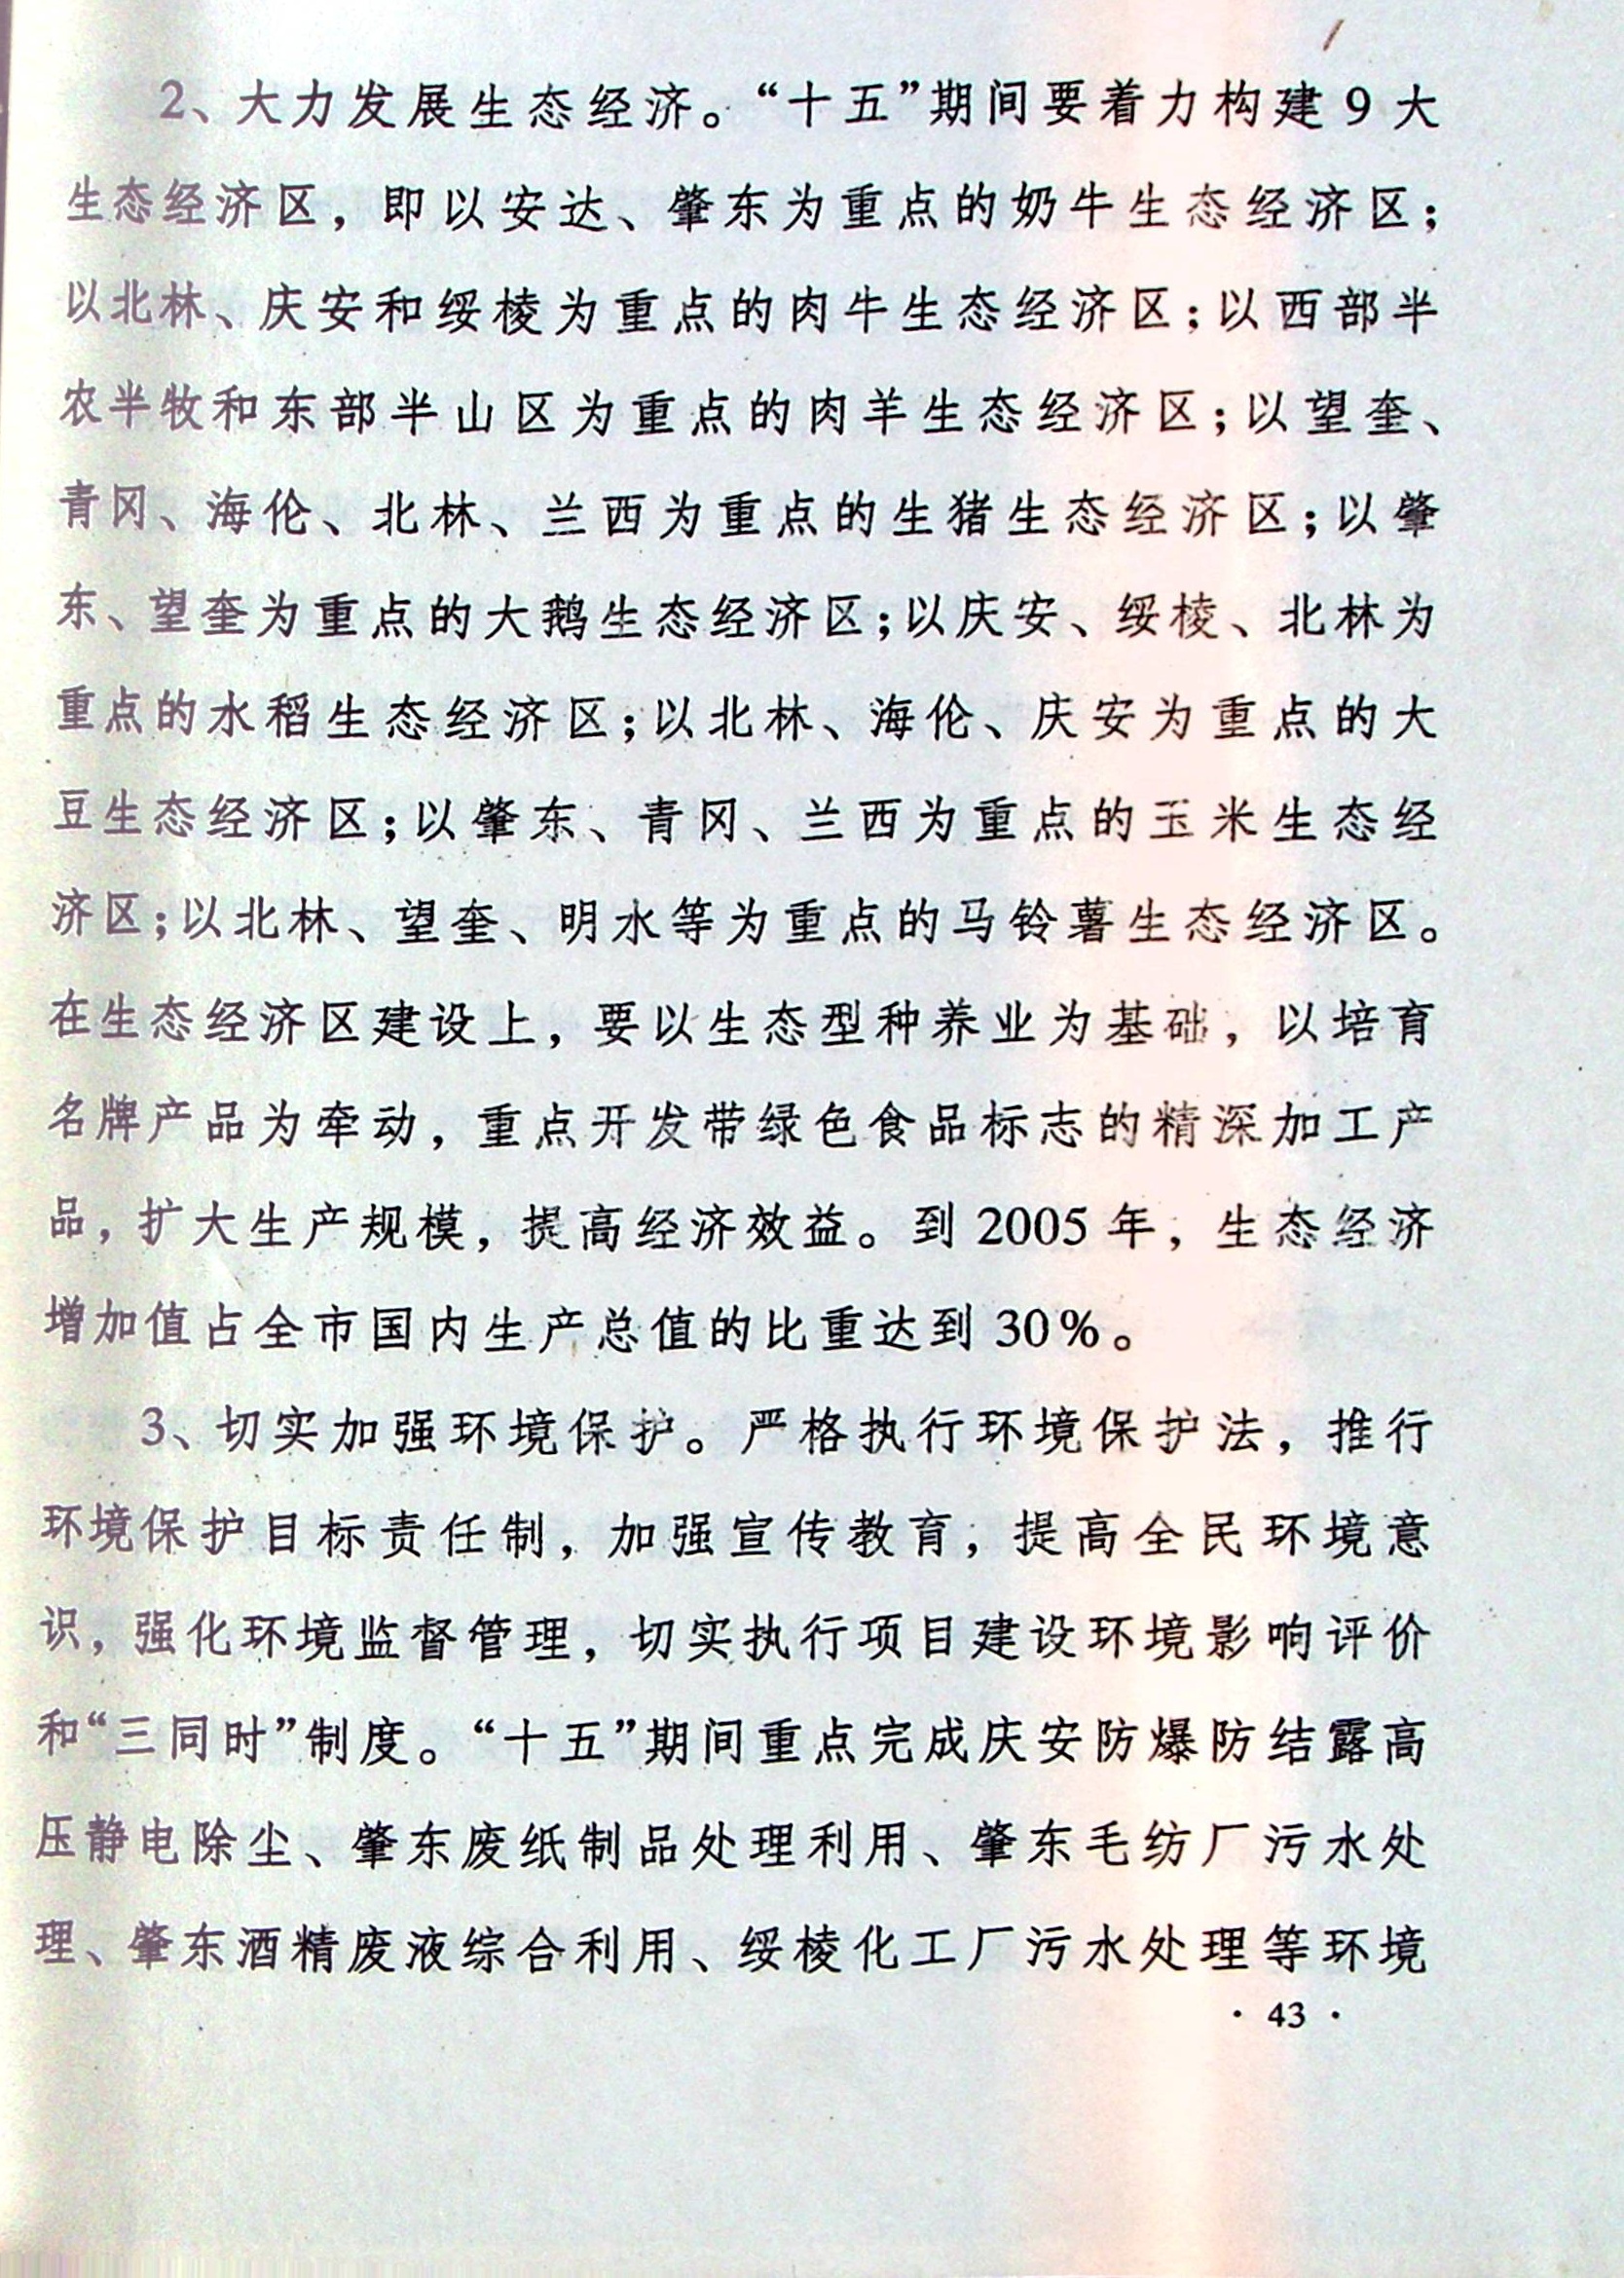 2、大力发展生态经济。“十五”期间要着力构建9大
生态经济区，即以安达、肇东为重点的奶牛生态经济区；
以北林、庆安和绥棱为重点的肉牛生态经济区；以西部半
农半牧和东部半山区为重点的肉羊生态经济区；以望奎、
青冈、海伦、北林、兰西为重点的生猪生态经济区；以肇
东、望奎为重点的大鹅生态经济区；以庆安、绥棱、北林为
重点的水稻生态经济区；以北林、海伦、庆安为重点的大
豆生态经济区；以肇东、青冈、兰西为重点的玉米生态经
济区；以北林、望奎、明水等为重点的马铃薯生态经济区。
在生态经济区建设上，要以生态型种养业为基础，以培育
名牌产品为牵动，重点开发带绿色食品标志的精深加工产
品，扩大生产规模，提高经济效益。到2005年，生态经济
增加值占全市国内生产总值的比重达到30%。
3、切实加强环境保护。严格执行环境保护法，推行
环境保护目标责任制，加强宣传教育，提高全民环境意
识，强化环境监督管理，切实执行项目建设环境影响评价
和“三同时”制度。“十五”期间重点完成庆安防爆防结露高
压静电除尘、肇东废纸制品处理利用、肇东毛纺厂污水处
理、肇东酒精废液综合利用、绥棱化工厂污水处理等环境
· 43 ·